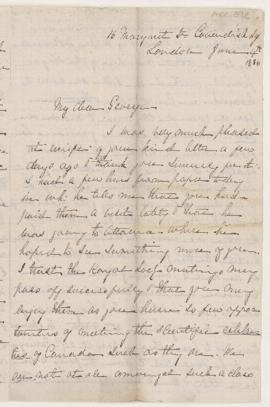 16 Margaret St Cavendish Sq
London June 4th
1886
My dear George
I was very much pleased
the receipt of your kind letter a few
days ago & thank you sincerely for it.
I had a few lines from papa to day
in wh. he tells me that you had
paid them a visit lately & that he
was going to Ottawa where he
hoped to see something more of you.
I trust the Royal Soc. meetings may
pass off successfully & that you may
enjoy them as you have so few oppor
tunities of meeting the scientific celebri
ties of Canada such as they are. We
are not at all amongst such a class